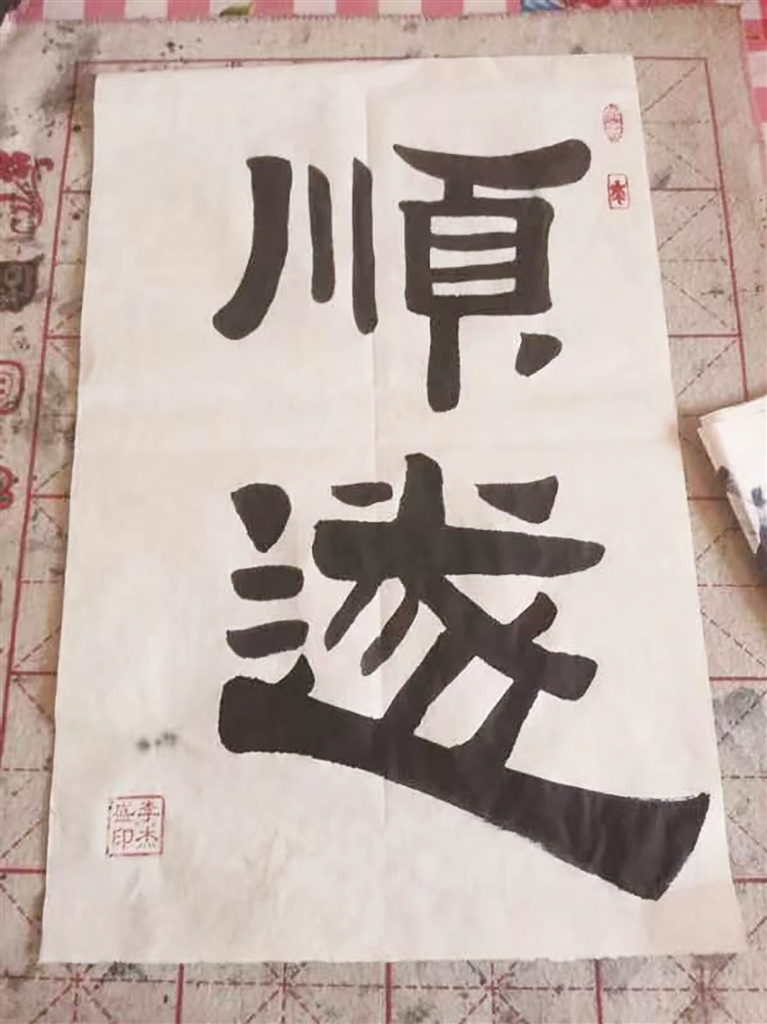 順
遂
李杰
盛印